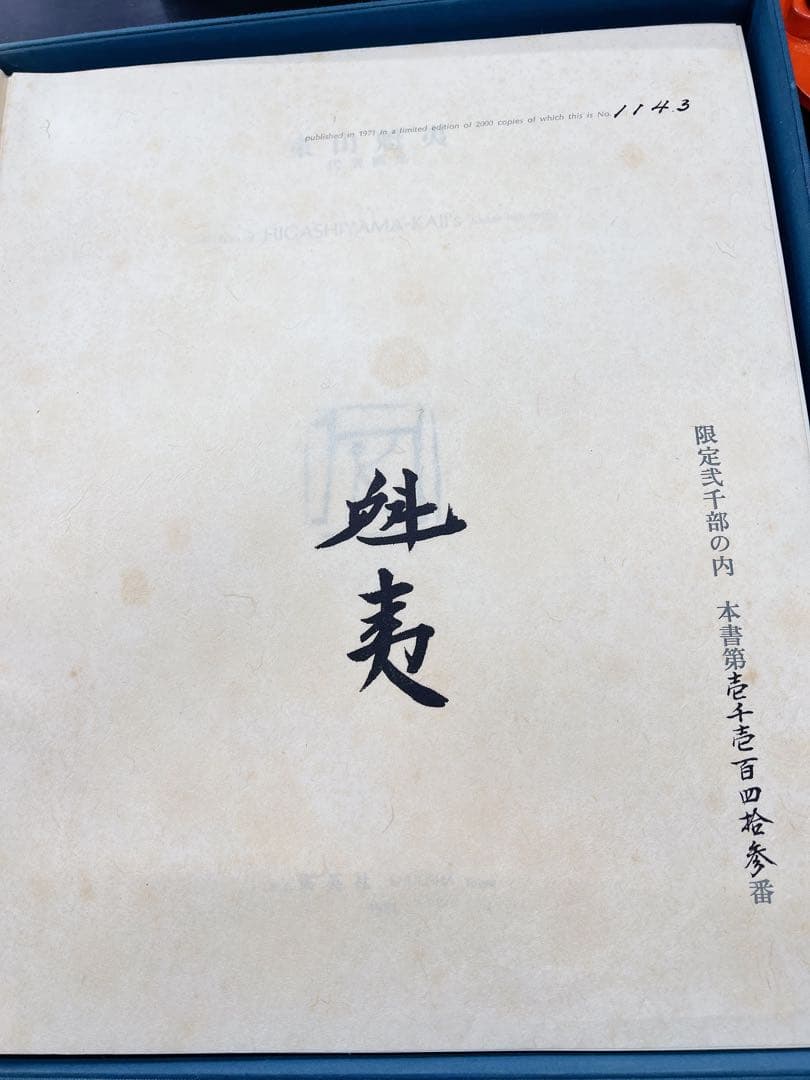 published in 1971 in a limited edition of 2000 copies of which this is No. 1143
HIGASHIYAMA-KAII's
魁夷
限定弐千部の内 本書第壱千壱百四拾参番